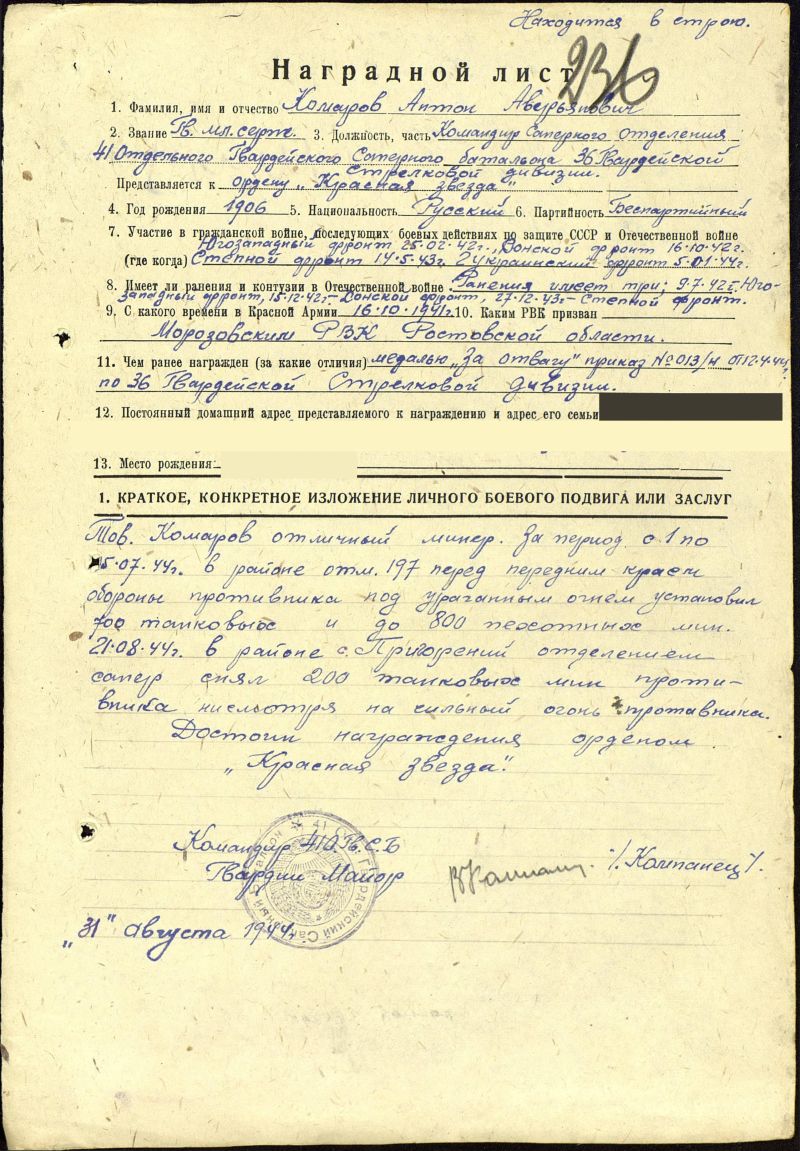 Находится в строю.
236
Наградной лист
1. Фамилия, имя и отчество Комаров Антон Аверьянович
2. Звание Гв. мл. серж. 3. Должность, часть Командир Саперного отделения
41 Отдельного Гвардейского Саперного батальона 36 Гвардейской
Стрелковой дивизии.
Представляется к ордену „Красная звезда"
4. Год рождения 1906 5. Национальность Русский 6. Партийность Беспартийный
7. Участие в гражданской войне, последующих боевых действиях по защите СССР и Отечественной войне
Югозападный фронт 25.02.42г., Донской фронт 16.10.42г.
(где когда) Степной фронт 14.5.43г. 2 украинский фронт 5.01.44г.
8. Имеет ли ранения и контузии в Отечественной войне Ранения имеет три; 9.7.42г. Юго-
западный фронт, 15.12.42г– Донской фронт, 27.12.43г– Степной фронт.
9. С какого времени в Красной Армии 16.10.1941г. 10. Каким РВК призван
Морозовским РВК Ростовской области.
11. Чем ранее награжден (за какие отличия) медалью „За отвагу" приказ № 013/н от 12.4.44г,
по 36 Гвардейской Стрелковой дивизии.
12. Постоянный домашний адрес представляемого к награждению и адрес его семьи
13. Место рождения
1. КРАТКОЕ, КОНКРЕТНОЕ ИЗЛОЖЕНИЕ ЛИЧНОГО БОЕВОГО ПОДВИГА ИЛИ ЗАСЛУГ
Тов. Комаров отличный минер. За период с 1 по
15.07.44г. в районе отм. 197 перед передним краем
обороны противника под ураганным огнем установил
700 танковых и до 800 пехотных мин.
21.08.44г. в районе с. Пригорений отделением
сапер снял 200 танковых мин проти-
вника нисмотря на сильный огонь противника.
Достоин награждения орденом
„Красная звезда".
Командир 41 О.Гв.С.Б
Гвардии Майор /. Компанец /.
„31" августа 1944г